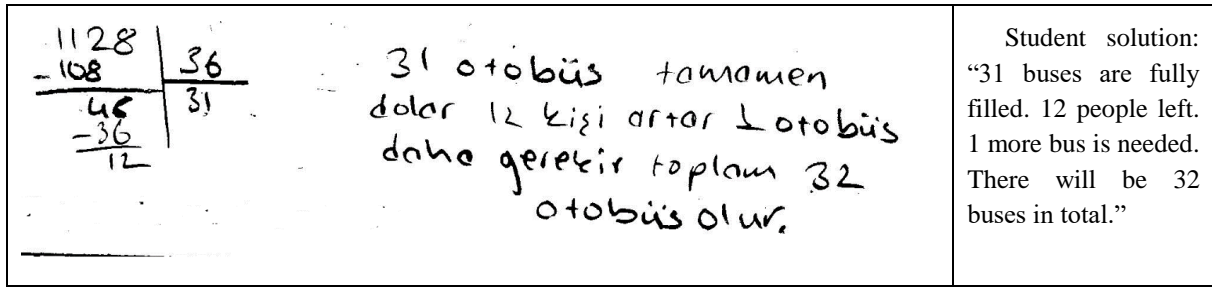 1128
36
-108
31
48
-36
12
31 otobüs tamamen
dolar 12 kişi artar 1 otobüs
daha gerekir toplam 32
otobüs olur.
Student solution:
“31 buses are fully
filled. 12 people left.
1 more bus is needed.
There will be 32
buses in total.”